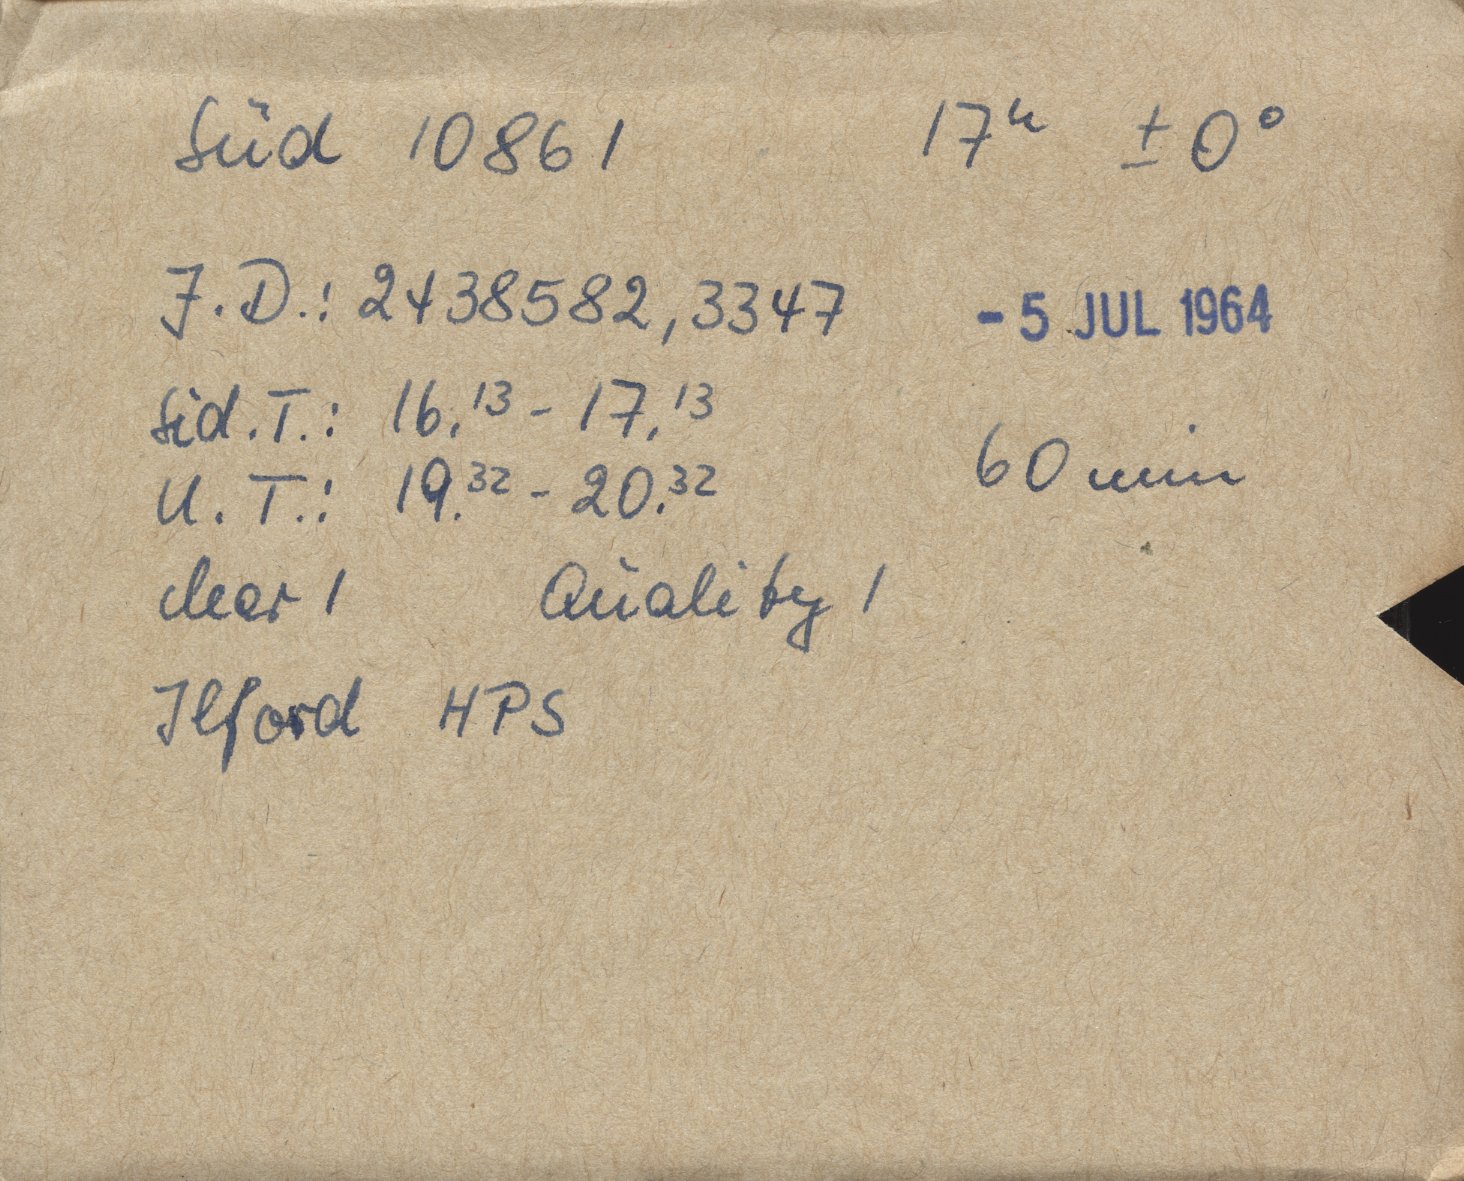 Süd 10861 17h ± 0°
J.D.: 2438582,3347 - 5 JUL 1964
Sid.T.: 16.13 - 17.13
U.T.: 19.32 - 20.32 60 min
clear 1 Quality 1
Ilford HPS